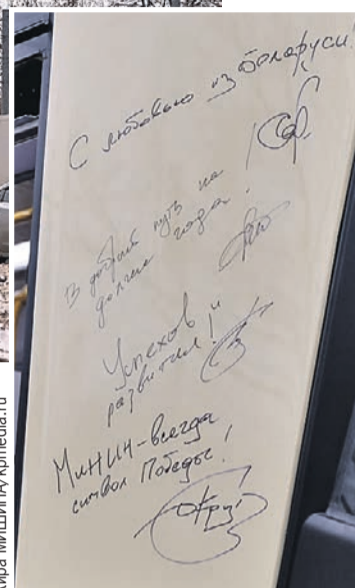 С любовью из Беларуси!
В добрый путь на
долгие года!
Успехов и
развития!
Минин - всегда
символ Победы!
МИШИНА/kpmedia.ru